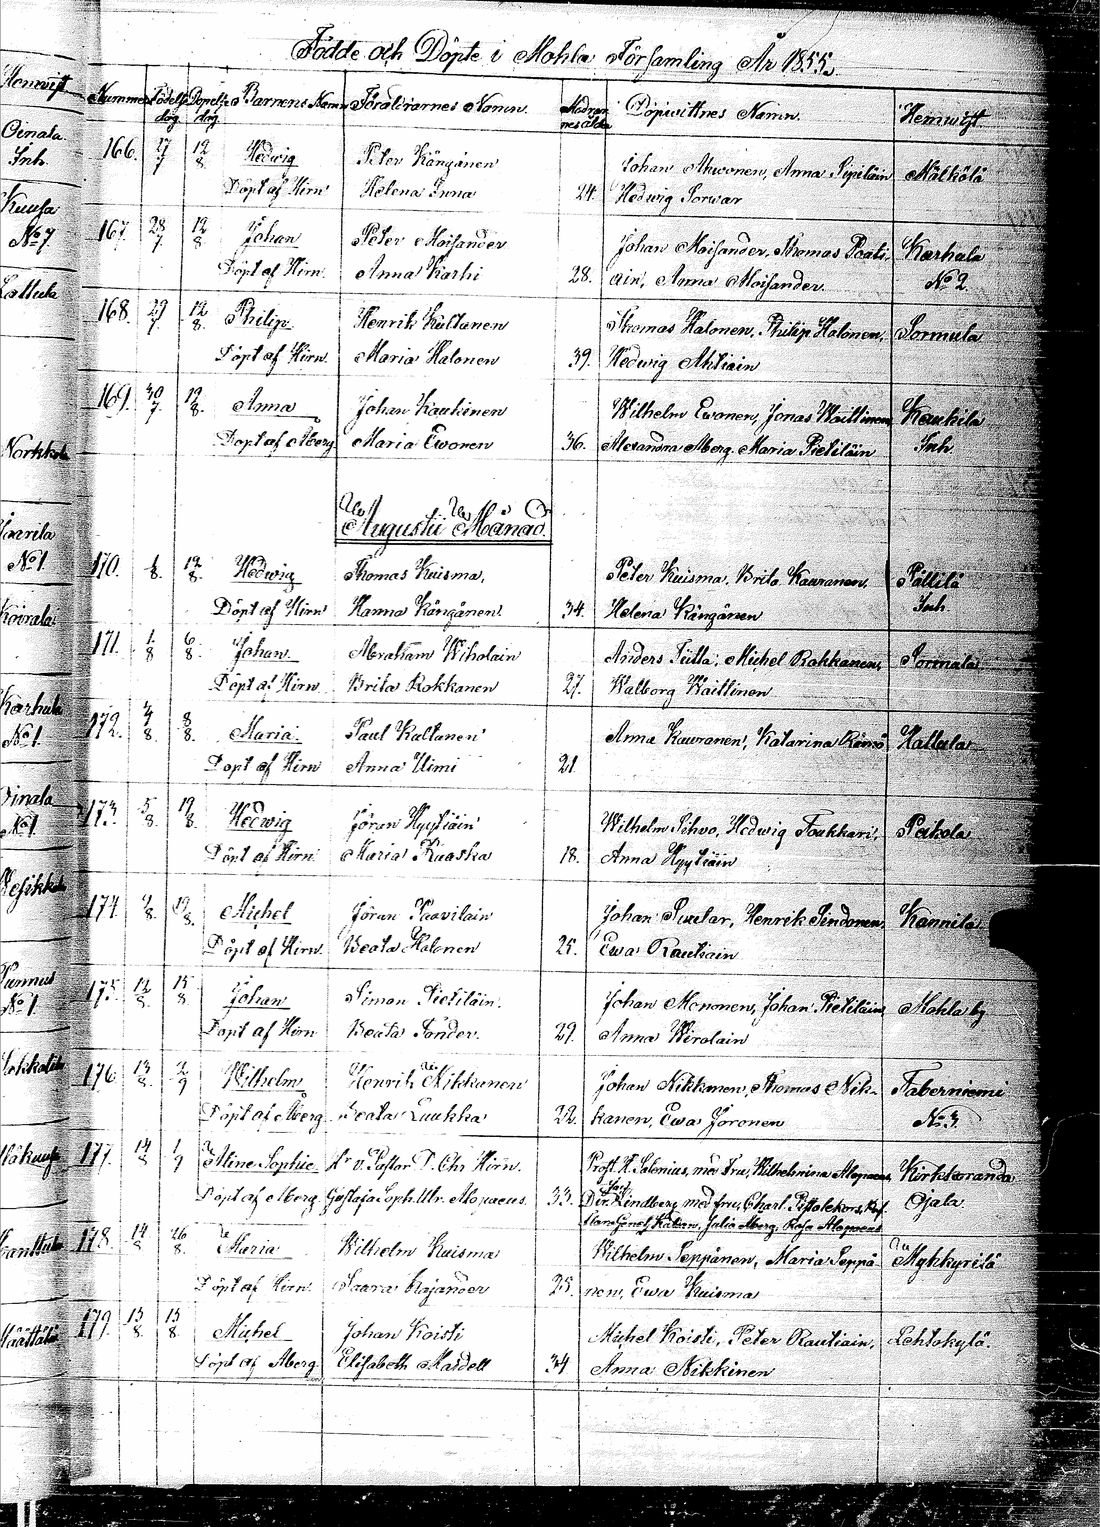 Födde och Döpte i Mohla Församling År 1855.
Hemvist
Nummer Födelse dag Döpelse dag Barnens Namn Föräldrarnes Namn. Modrens ålder Döpvittnes Namn. Hemvist
Oinala
Inh.
166. 27/7 12/8 Hedwig Peter Kängänen Johan Akwonen, Anna Pipiläin Mälkölä
Döpt af Hirn Helena Inna 24. Hedwig Sorwar
Kuusa
No 7
167. 28/7 12/8 Johan Peter Moisander Johan Moisander, Thomas Posti- Karhula
Döpt af Hirn. Anna Karhi 28. ain, Anna Moisander. No 2.
Lattula
168. 29/7 12/8 Philip Henrik Kultanen Thomas Halonen, Philip Halonen, Sormula
Döpt af Hirn. Maria Halonen 39. Hedwig Ahtiain
169. 30/7 12/8 Anna Johan Kaukinen Wilhelm Ewonen, Jonas Waittinen Kaukila
Norkkola
Döpt af Åberg Maria Ewonen 36. Alexandra Åberg, Maria Pietiläin Inh.
Augustii Månad.
No 1
170. 1/8 12/8 Hedwig Thomas Kuisma, Peter Kuisma, Brita Kauranen, Pällilä
Döpt af Hirn Hanna Kängänen 34. Helena Kängänen Inh.
171. 1/8 6/8 Johan Abraham Wiholain Anders Tutta, Michel Rokkanen, Sormula
Döpt af Hirn Brita Rokkanen 27. Walborg Waittinen
Karhula
No 1
172. 4/8 8/8 Maria Paul Kaltanen Anna Kauranen, Katarina Hattula
Döpt af Hirn Anna Uimi 21.
Oinala
No 1
173. 5/8 19/8 Hedwig Jöran Hyytiäin Wilhelm Sihvo, Hedwig Toukkari, Peikola
Döpt af Hirn Maria Ruaska 18. Anna Hyytiäin
174. 9/8 19/8 Michel Jöran Paavilain Johan Henrik Kannila
Döpt af Hirn. Beata Halonen 25. Ewa Rautiain
Tammus
No 1
175. 12/8 15/8 Johan Simon Pietiläin. Johan Mononen, Johan Pietiläin Mohla by
Döpt af Hirn Beata Fonder. 29. Anna Wirolain
176. 13/8 2/9 Wilhelm Henrik Nikkanen Johan Nikkanen, Thomas Nik- Taberniemi
Döpt af Åberg Beata Luukka 22. kanen, Ewa Joronen No 3.
177. 14/8 1/9 Aline Sophie Hr v. Pastor D. Chr Hirn. Prost K. Salenius, med fru, Wilhelmina Alopaeus, Kirksaranda
Döpt af Åberg. Gustafa Soph. Ulr. Alopaeus. 33. Dir. Kindberg, med fru, Charl. Ojala.
Julia Åberg, Rosa Alopaeus
178. 14/8 26/8 Maria Wilhelm Kuisma Wilhelm Seppänen, Maria Seppä- Mykkyrilä
Döpt af Hirn. Saara Kojander 25. nen, Ewa Kuisma
179. 15/8 15/8 Michel Johan Koisti Michel Koisti, Peter Rautiain, Lehtokylä.
Döpt af Åberg. Elisabeth Mardell 34 Anna Nikkinen